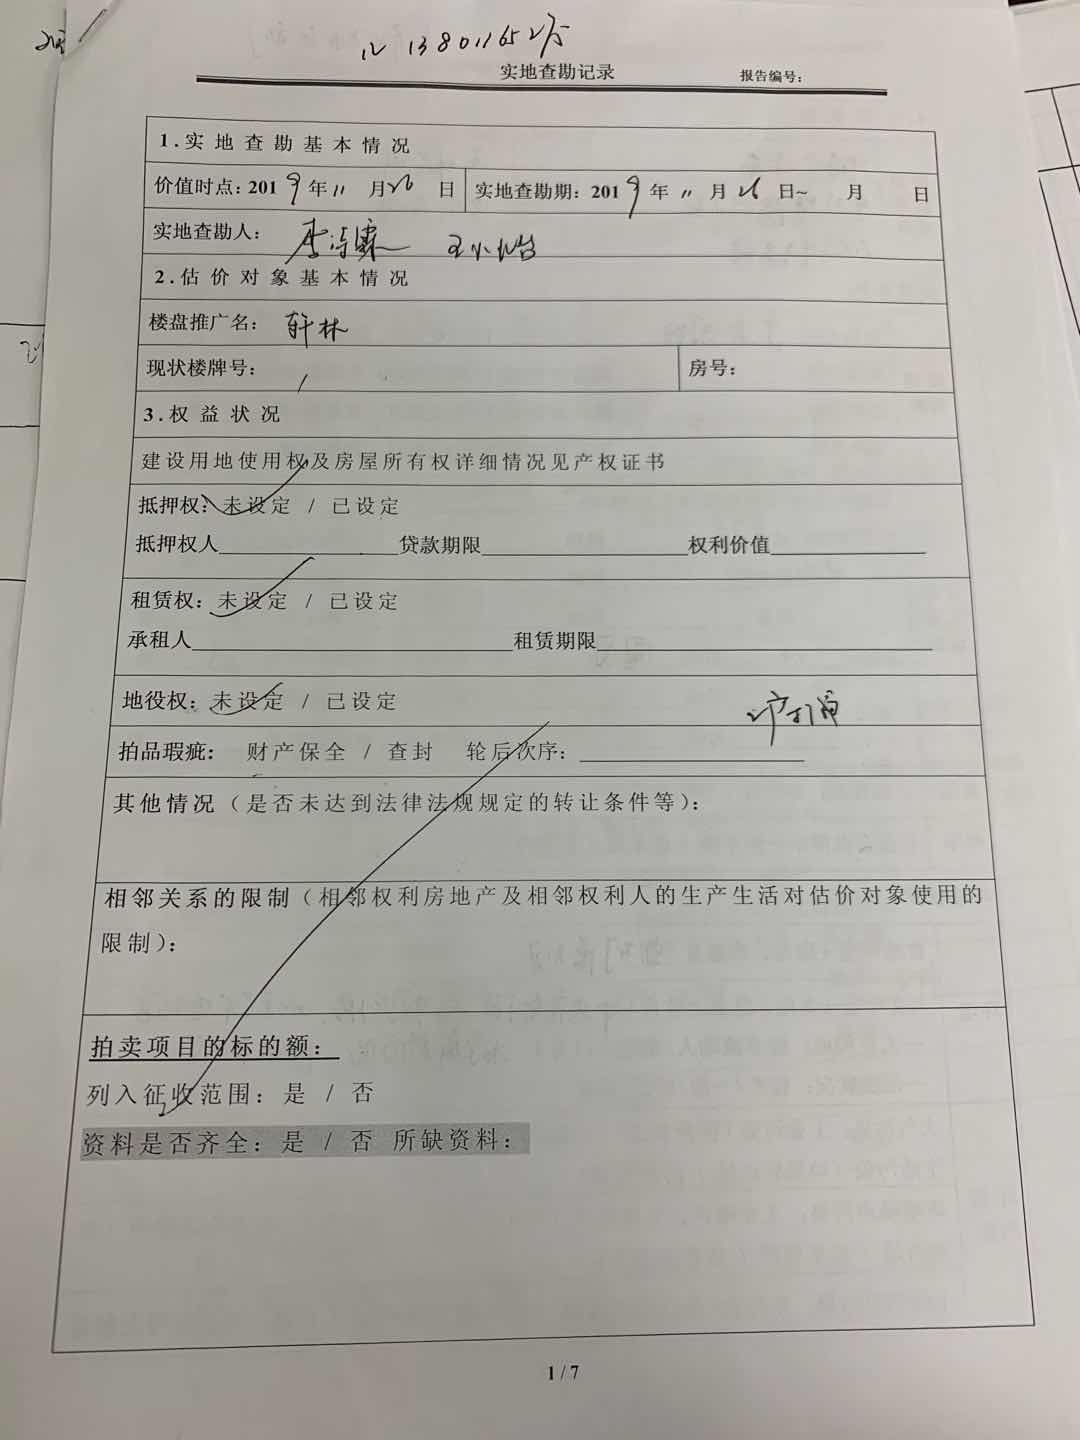 实地查勘记录 报告编号：
1.实地查勘基本情况
价值时点：2019年11月26日 实地查勘期：2019年11月26日~ 月 日
实地查勘人：
2.估价对象基本情况
楼盘推广名：轩林
现状楼牌号： / 房号：
3.权益状况
建设用地使用权及房屋所有权详细情况见产权证书
抵押权：未设定 / 已设定
抵押权人 贷款期限 权利价值
租赁权：未设定 / 已设定
承租人 租赁期限
地役权：未设定 / 已设定
拍品瑕疵： 财产保全 / 查封 轮后次序：
其他情况（是否未达到法律法规规定的转让条件等）：
相邻关系的限制（相邻权利房地产及相邻权利人的生产生活对估价对象使用的
限制）：
拍卖项目的标的额：
列入征收范围：是 / 否
资料是否齐全：是 / 否 所缺资料：
1 / 7